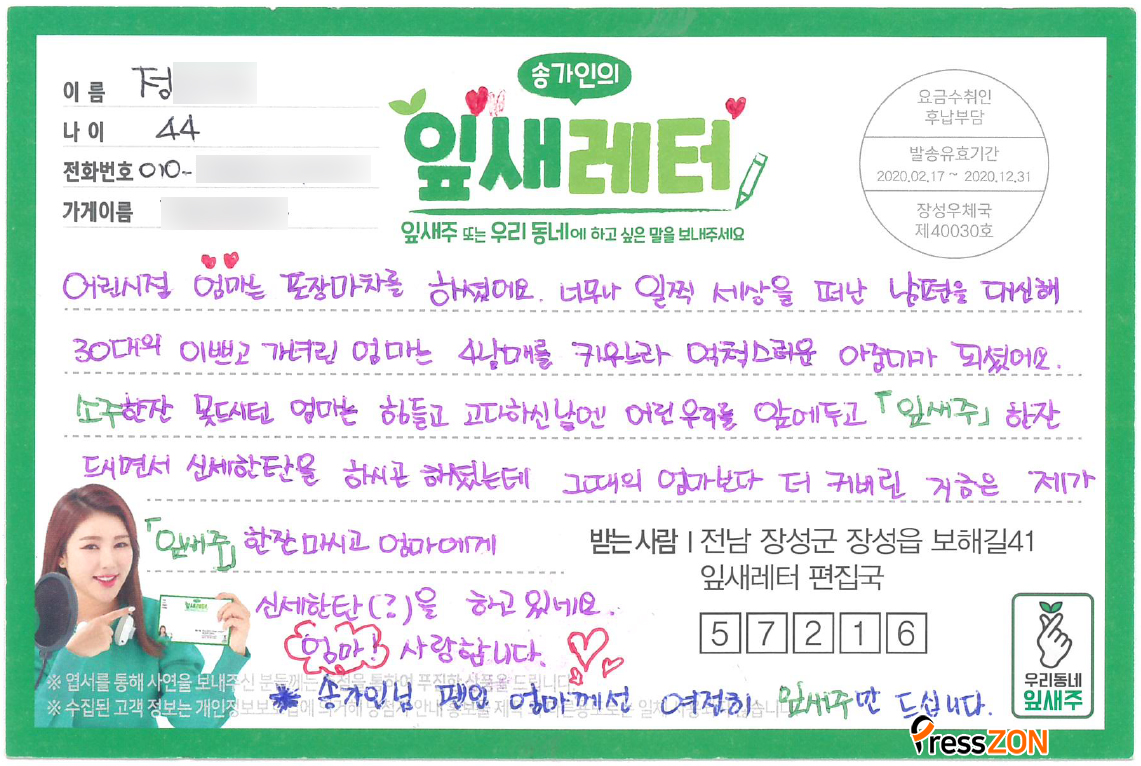 이 름 정
나 이 44
전화번호 010-
가게이름
송가인의
잎새레터
잎새주 또는 우리 동네에 하고 싶은 말을 보내주세요
요금수취인
후납부담
발송유효기간
2020.02.17 ~ 2020.12.31
장성우체국
제40030호
어린시절 엄마는 포장마차를 하셨어요. 너무나 일찍 세상을 떠난 남편을 대신해
30대의 이쁘고 가녀린 엄마는 4남매를 키우느라 억척스러운 아줌마가 되셨어요.
소주한잔 못드시던 엄마는 힘들고 고다하신날엔 어린 우리를 앞에두고 「잎새주」 한잔
드시면서 신세한탄을 하시곤 하셨는데 그때의 엄마보다 더 커버린 지금은 제가
「잎새주」 한잔 마시고 엄마에게
신세한탄(?)을 하고 있네요.
엄마! 사랑합니다.
받는 사람 | 전남 장성군 장성읍 보해길41
잎새레터 편집국
5 7 2 1 6
※ 엽서를 통해 사연을 보내주신 분들께는 추첨을 통하여 푸짐한 상품을 드립니다.
※ 수집된 고객 정보는 개인정보보호법에 의거해
* 송가인님 팬인 엄마께선 여전히 잎새주만 드십니다.
우리동네
잎새주
잎새레터
PressZON